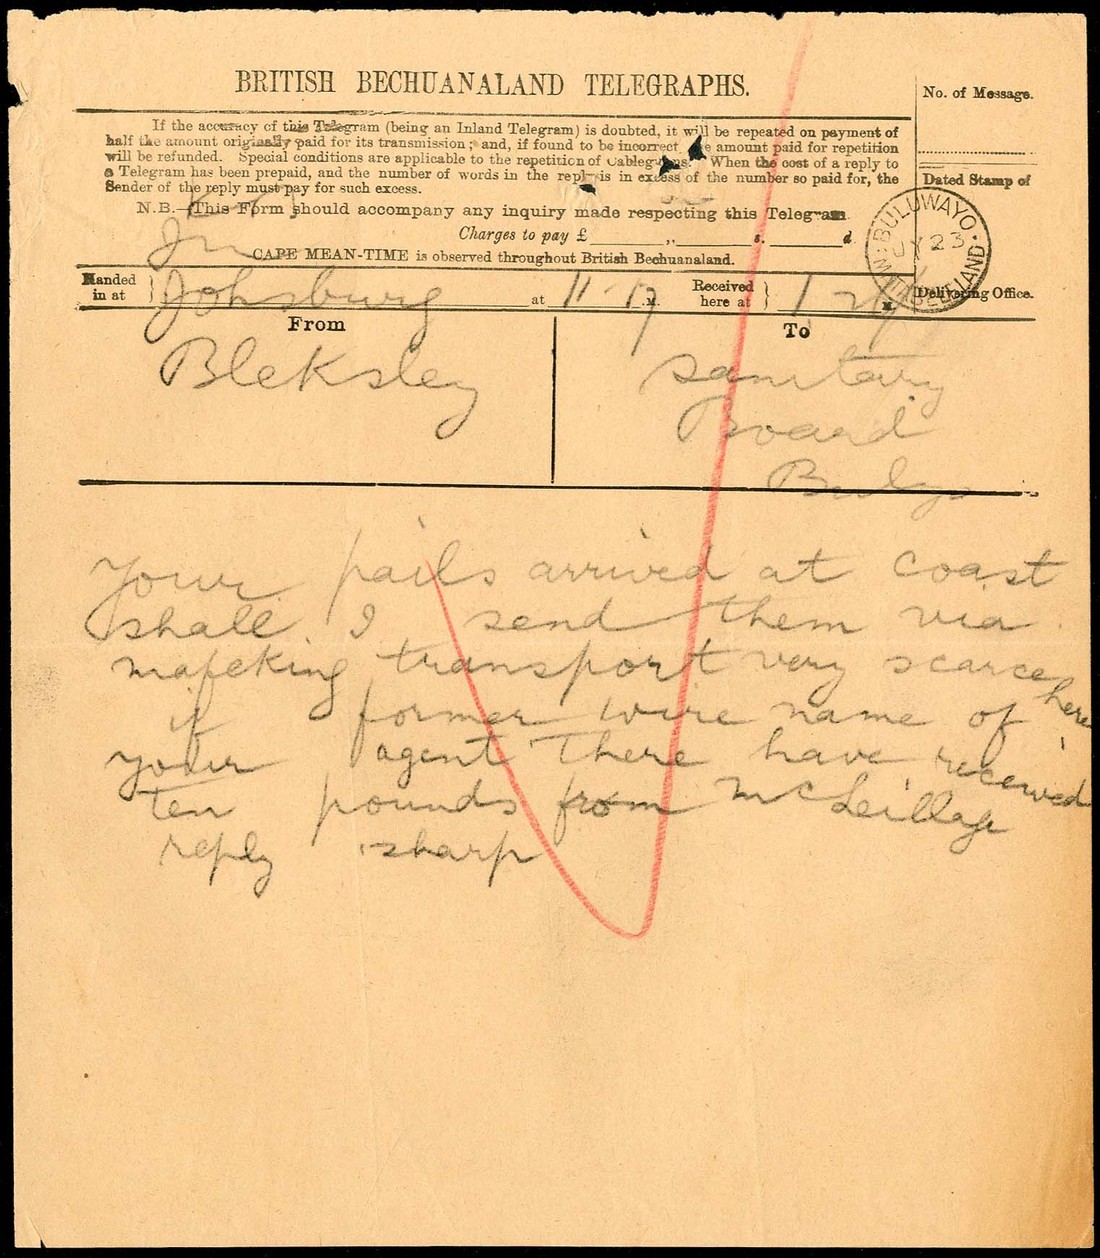 BRITISH BECHUANALAND TELEGRAPHS.
No. of Message.
If the accuracy of this Telegram (being an Inland Telegram) is doubted, it will be repeated on payment of
half the amount originally paid for its transmission; and, if found to be incorrect, the amount paid for repetition
will be refunded. Special conditions are applicable to the repetition of Cablegrams. When the cost of a reply to
a Telegram has been prepaid, and the number of words in the reply is in excess of the number so paid for, the
Sender of the reply must pay for such excess.
Dated Stamp of
N.B.—This Form should accompany any inquiry made respecting this Telegram.
Charges to pay £ ,, s. d.
CAPE MEAN-TIME is observed throughout British Bechuanaland.
BULUWAYO
JY 23
MATABELELAND
Delivering Office.
Handed in at } Johsburg at 11-17 M. Received here at } M.
From
To
Bleksley
Sanitary
Board
Bulyo
Your pails arrived at coast
shall I send them via
mafeking transport very scarce here
if former wire name of
your agent there have received
ten pounds from
reply sharp